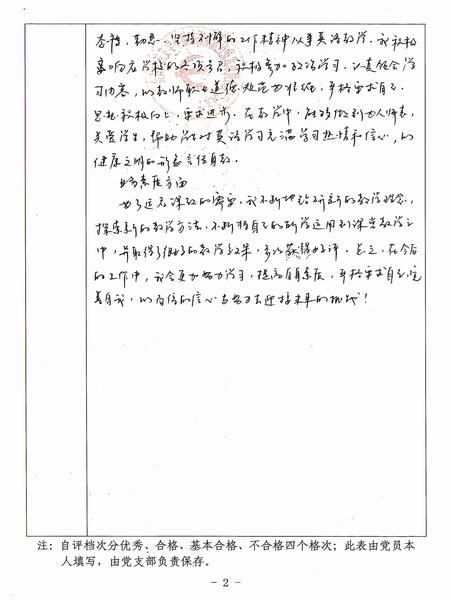 坚持不懈的工作精神从事英语教学。我积极
响应学校的各项号召，积极参加政治学习，认真领会学
习内容，以教师职业道德规范为准绳，严格要求自己。
思想积极向上，要求进步。在教学中，能够做到为人师表，
关爱学生，帮助学生对英语学习充满学习热情和信心，以
健康文明的形象言传身教。
业务素质方面
为了适应课改的需要，我不断地钻研新的教学理念，
探索新的教学方法，不断将自己的所学运用到课堂教学之
中，并取得了很好的教学效果，多次获得好评。总之，在今后
的工作中，我会更加努力学习，提高自身素质，严格要求自己，完
善自我，以百倍的信心与努力去迎接未来的挑战！
注：自评档次分优秀、合格、基本合格、不合格四个格次；此表由党员本
人填写，由党支部负责保存。
- 2 -